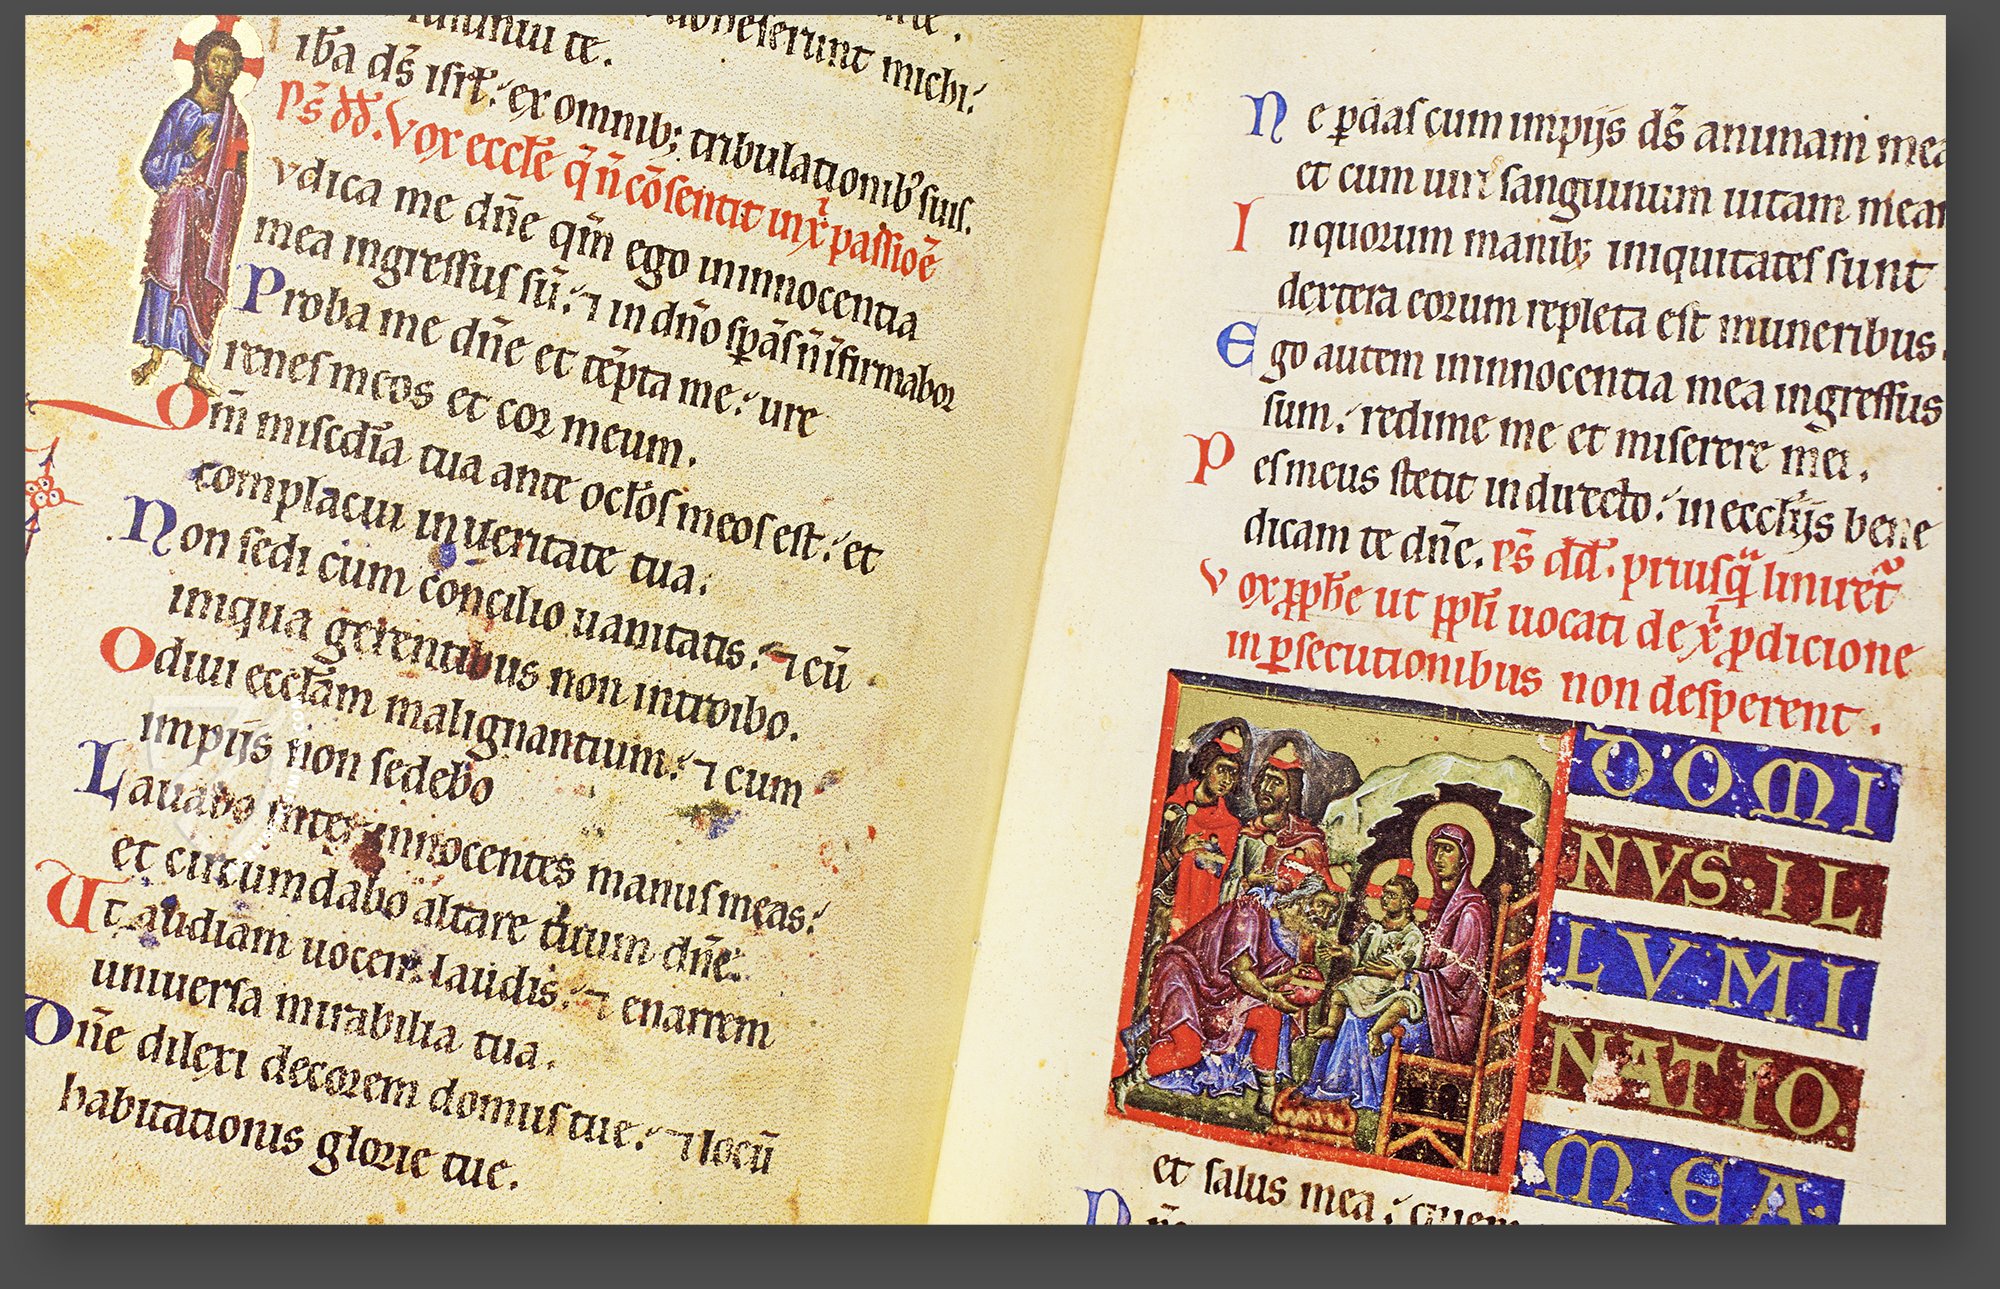 te.
adheserunt michi⁊
ibͣa ds̄ isrl̄ ⁊ ex omnib; tribulationibꝰ suis.
ps̄ dd. Vox eccl̄e q̄ n̄ cōsentit in xp̄i passiōe
vdica me dn̄e qm̄ ego in innocentia
mea ingressus sū ⁊ ⁊ in dn̄o spͣās n̄ īfirmabor
Proba me dn̄e et tēpta me ⁊ ure
renes meos et cor meum.
Qm̄ miscd̄ia tua ante ocl̄os meos est ⁊ et
complacui in ueritate tua.
Non sedi cum concilio uanitatis. ⁊ cū
iniqua gerentibus non introibo.
Odiui eccl̄am malignantium. ⁊ cum
impijs non sedebo
Lauabo inter innocentes manus meas.
et circumdabo altare tuum dn̄e.
Ut audiam uocem laudis. ⁊ enarrem
uniuersa mirabilia tua.
Dn̄e dilexi decorem domus tue. ⁊ locū
habitationis glorie tue.
Ne ꝑdas cum impijs ds̄ animam mea
et cum uiri sanguinum uitam mear
In quorum manib; iniquitates sunt
dextera eorum repleta est muneribus.
Ego autem in innocentia mea ingressus
sum. redime me et miserere mei.
Pes meus stetit in directo. in eccl̄ijs bene
dicam te dn̄e. ps̄ dd. priusq̄ͣ liniret᷑
Vox ꝓph̄e ut ppl̄i uocati de xp̄i p̄dicione
in ꝑsecutionibus non desperent.
DOMI
NVS·IL
LVMI
NATIO.
MEA.
et salus mea quem